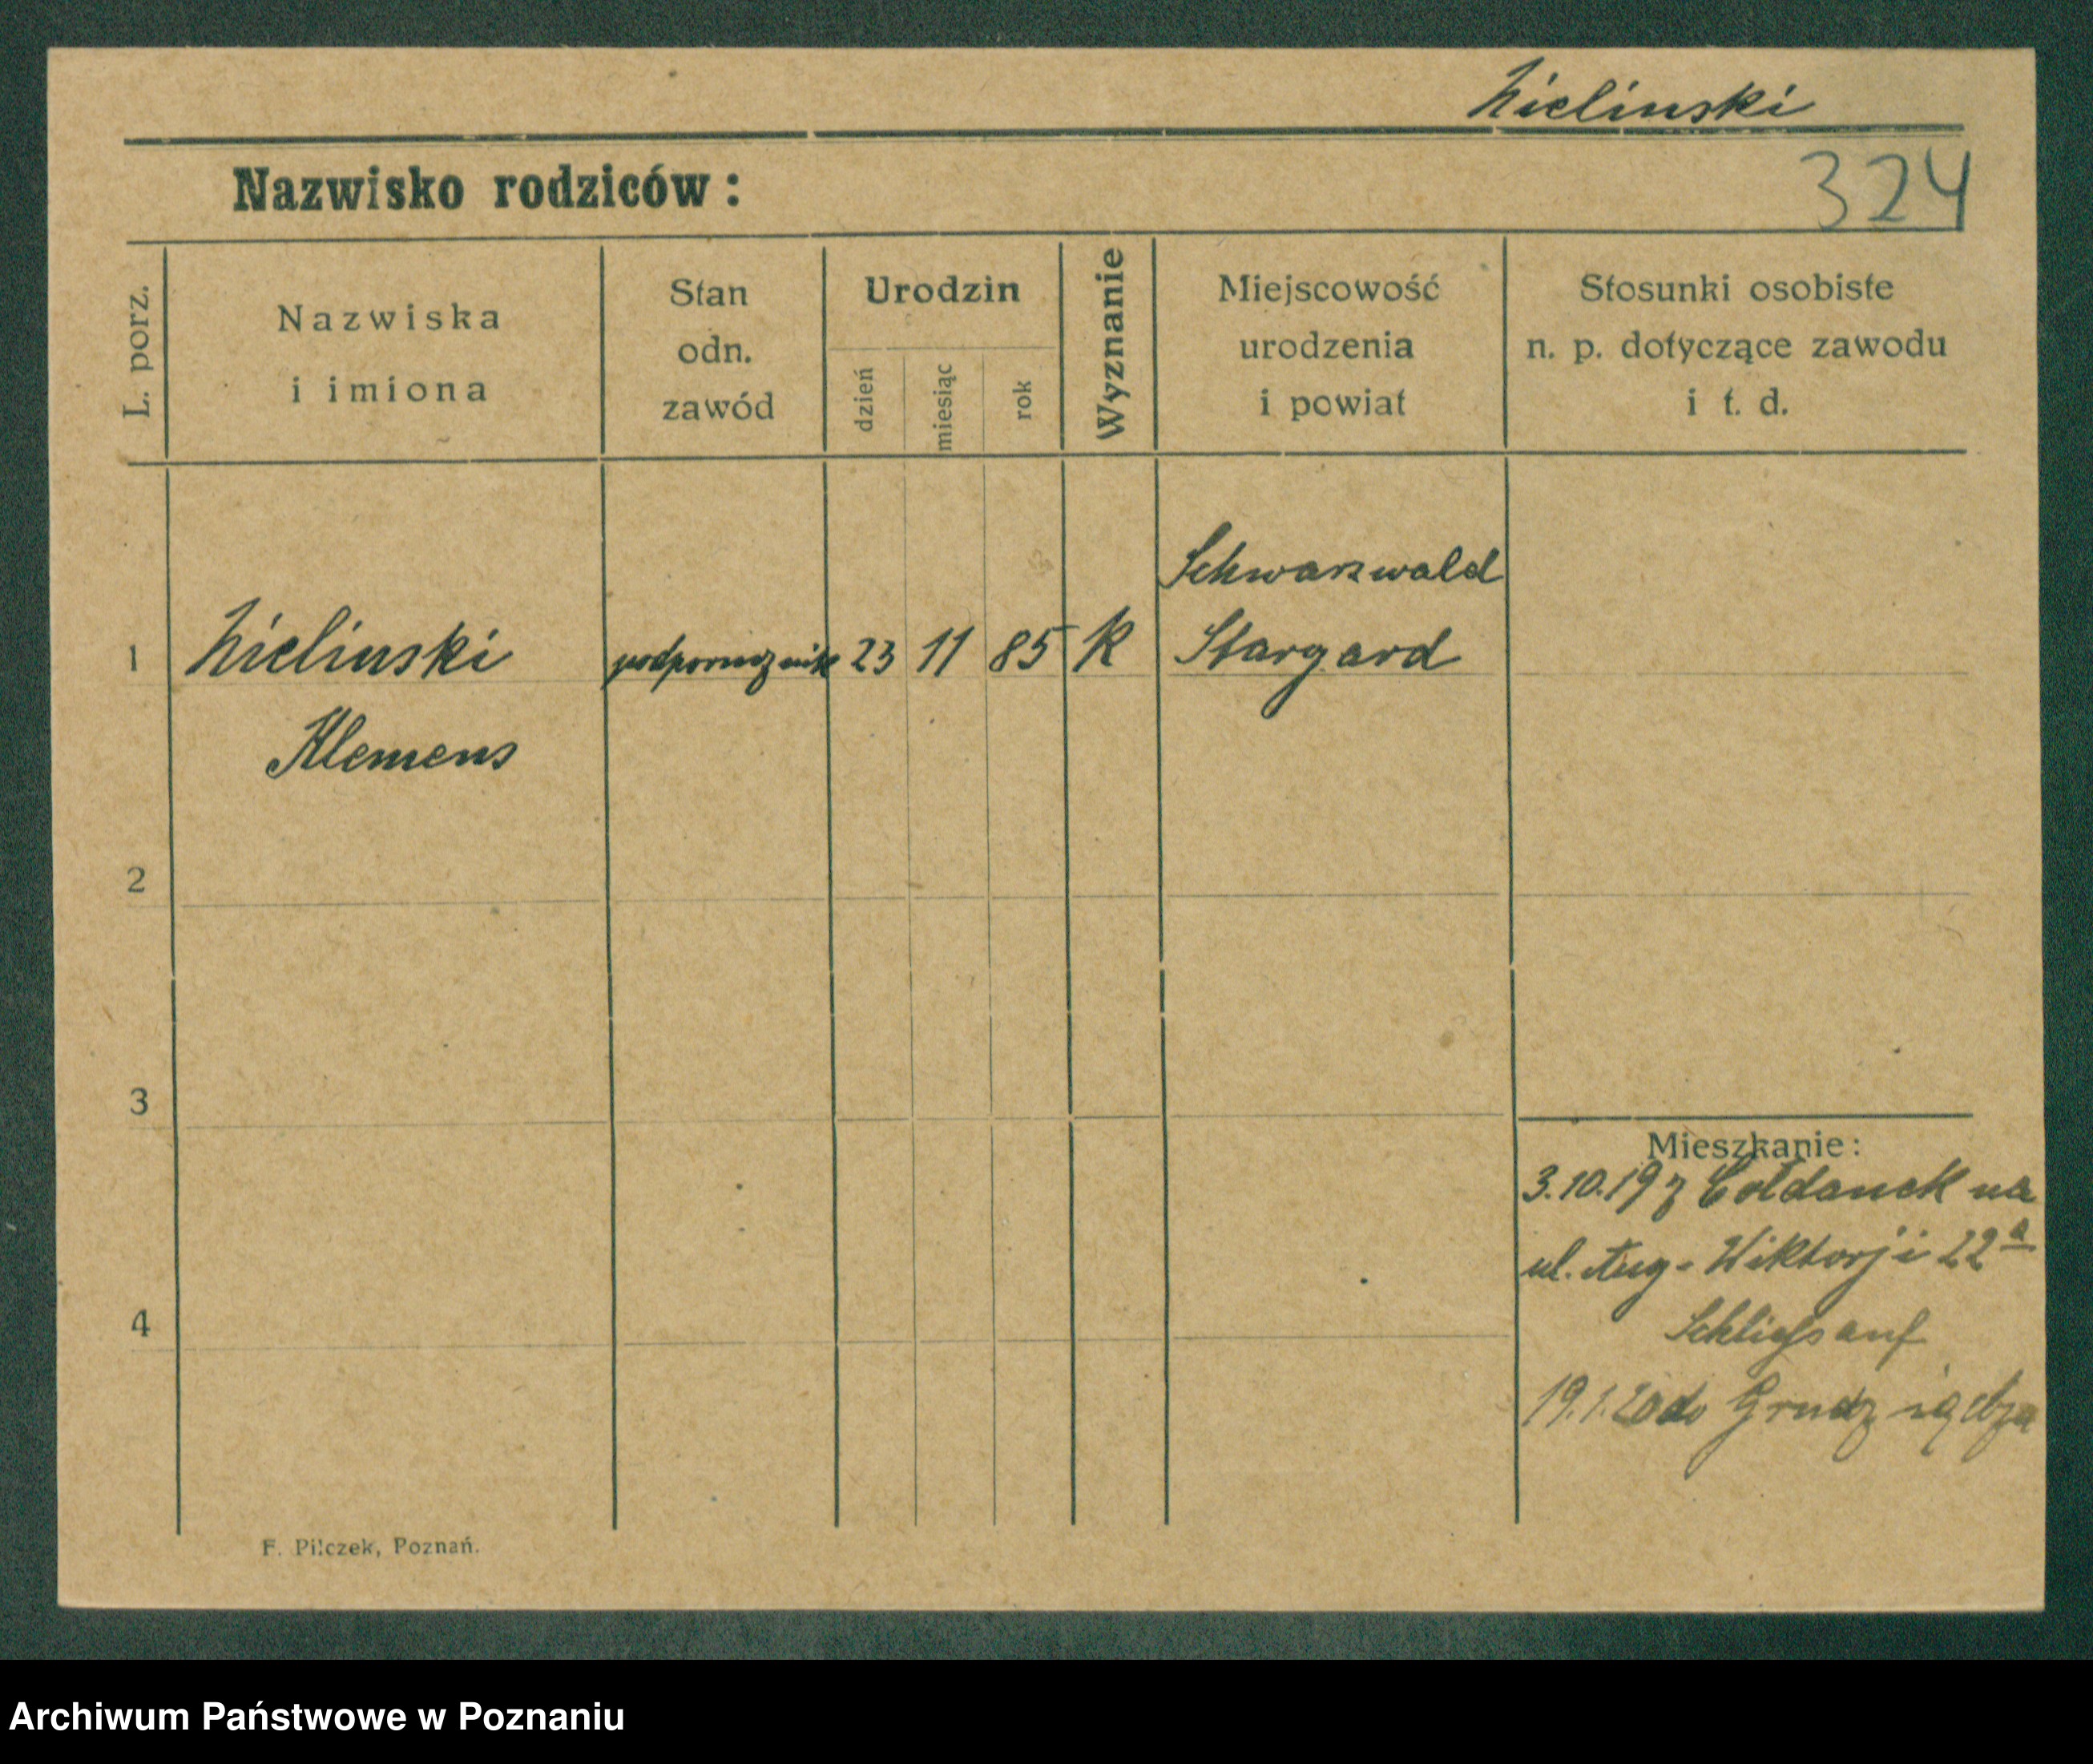 Zielinski
Nazwisko rodziców:
324
L. porz.
Nazwiska
i imiona
Stan
odn.
zawód
Urodzin
dzień
miesiąc
rok
Wyznanie
Miejscowość
urodzenia
i powiat
Stosunki osobiste
n. p. dotyczące zawodu
i t. d.
Schwarzwald
1 Zielinski podporucznik 23 11 85 K Stargard
Klemens
2
3
Mieszkanie:
3.10.19 z na
ul. Aug-Wiktorji 22a
4
19.1.20 do Grudziądza
F. Pilczek, Poznań.
Archiwum Państwowe w Poznaniu